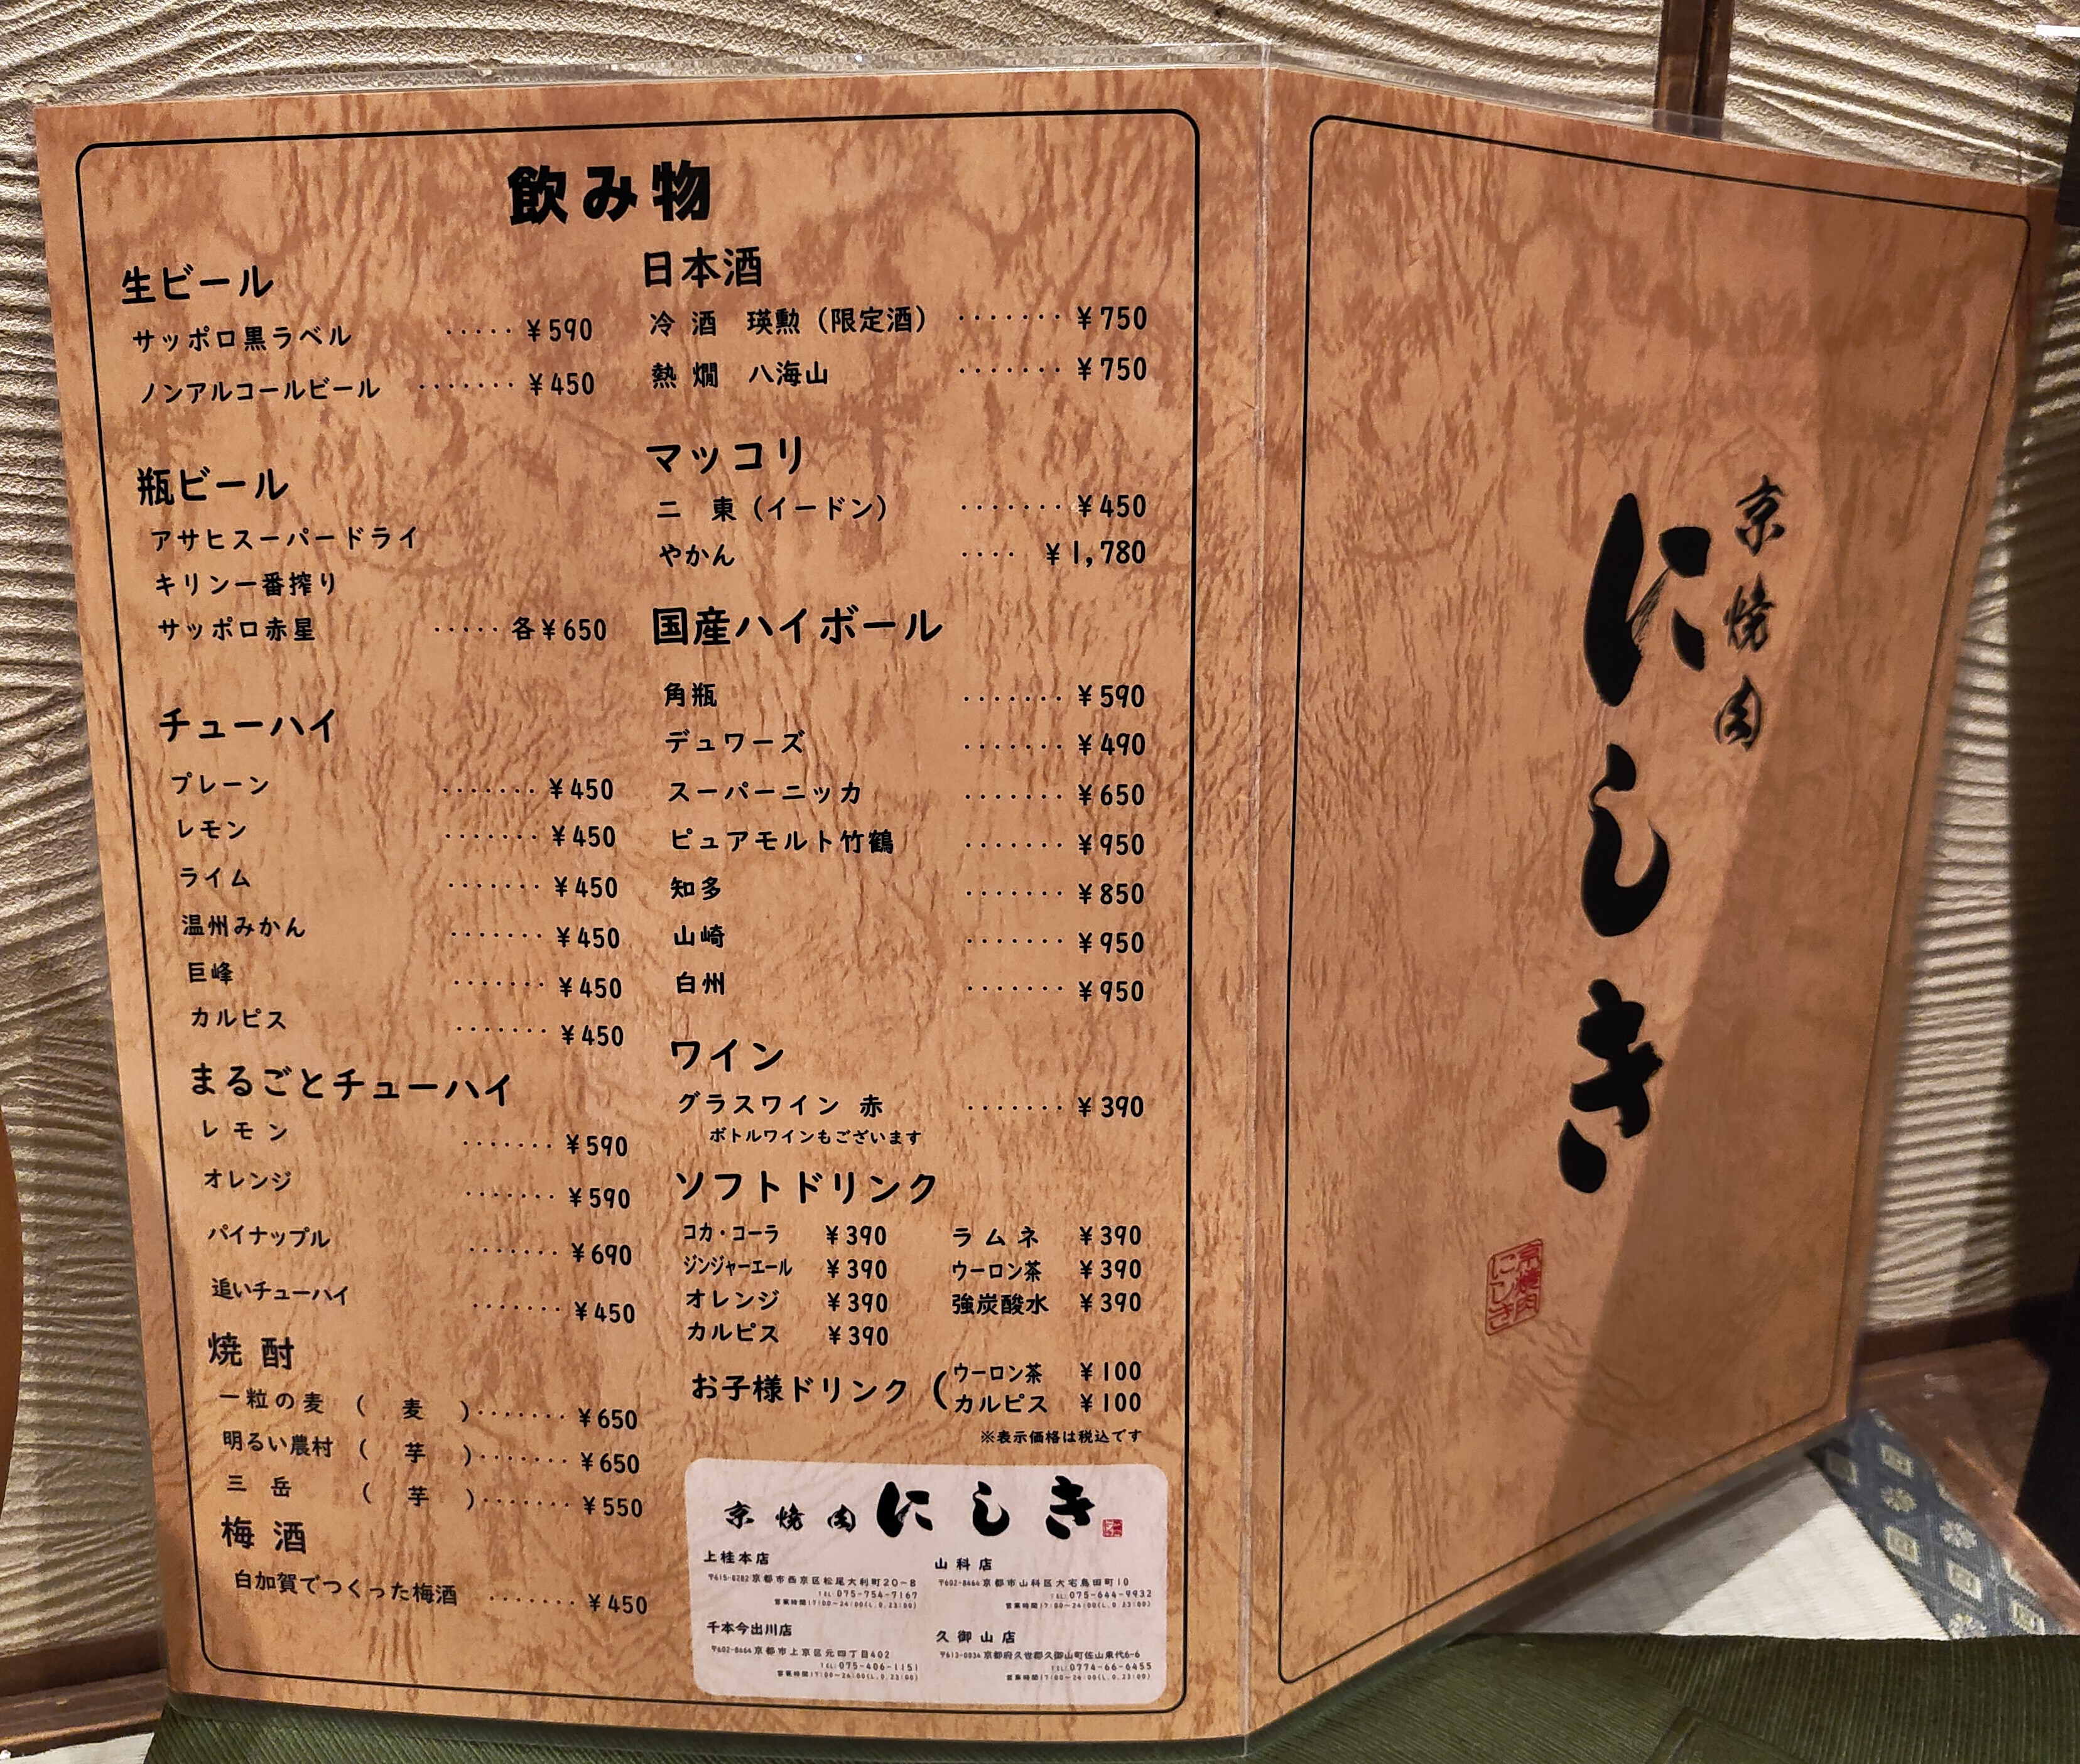 飲み物
生ビール
サッポロ黒ラベル ····· ¥590
ノンアルコールビール ······· ¥450
瓶ビール
アサヒスーパードライ
キリン一番搾り
サッポロ赤星 ····· 各¥650
チューハイ
プレーン ······· ¥450
レモン ······· ¥450
ライム ······· ¥450
温州みかん ······· ¥450
巨峰 ······· ¥450
カルピス ······· ¥450
まるごとチューハイ
レモン ······· ¥590
オレンジ ······· ¥590
パイナップル ······· ¥690
追いチューハイ ······· ¥450
焼酎
一粒の麦 ( 麦 )······· ¥650
明るい農村 ( 芋 )······· ¥650
三岳 ( 芋 )······· ¥550
梅酒
白加賀でつくった梅酒 ······· ¥450
日本酒
冷酒 瑛勲（限定酒） ······· ¥750
熱燗 八海山 ······· ¥750
マッコリ
二東（イードン） ······· ¥450
やかん ···· ¥1,780
国産ハイボール
角瓶 ······· ¥590
デュワーズ ······· ¥490
スーパーニッカ ······· ¥650
ピュアモルト竹鶴 ······· ¥950
知多 ······· ¥850
山崎 ······· ¥950
白州 ······· ¥950
ワイン
グラスワイン 赤 ······· ¥390
ボトルワインもございます
ソフトドリンク
コカ・コーラ ¥390 ラムネ ¥390
ジンジャーエール ¥390 ウーロン茶 ¥390
オレンジ ¥390 強炭酸水 ¥390
カルピス ¥390
お子様ドリンク (ウーロン茶 ¥100
カルピス ¥100
※表示価格は税込です
京焼肉にしき
上桂本店
〒615-8282京都市西京区松尾大利町20-8
TEL:075-754-7167
営業時間17:00~24:00(L.O.23:00)
千本今出川店
〒602-8464京都市上京区元四丁目402
TEL:075-406-1151
営業時間17:00~24:00(L.O.23:00)
山科店
〒602-8464京都市山科区大宅鳥田町10
TEL:075-644-9932
営業時間17:00~24:00(L.O.23:00)
久御山店
〒613-0034京都府久世郡久御山町佐山東代6-6
TEL:0774-66-6455
営業時間17:00~24:00(L.O.23:00)
京焼肉
にしき
京焼肉
にしき